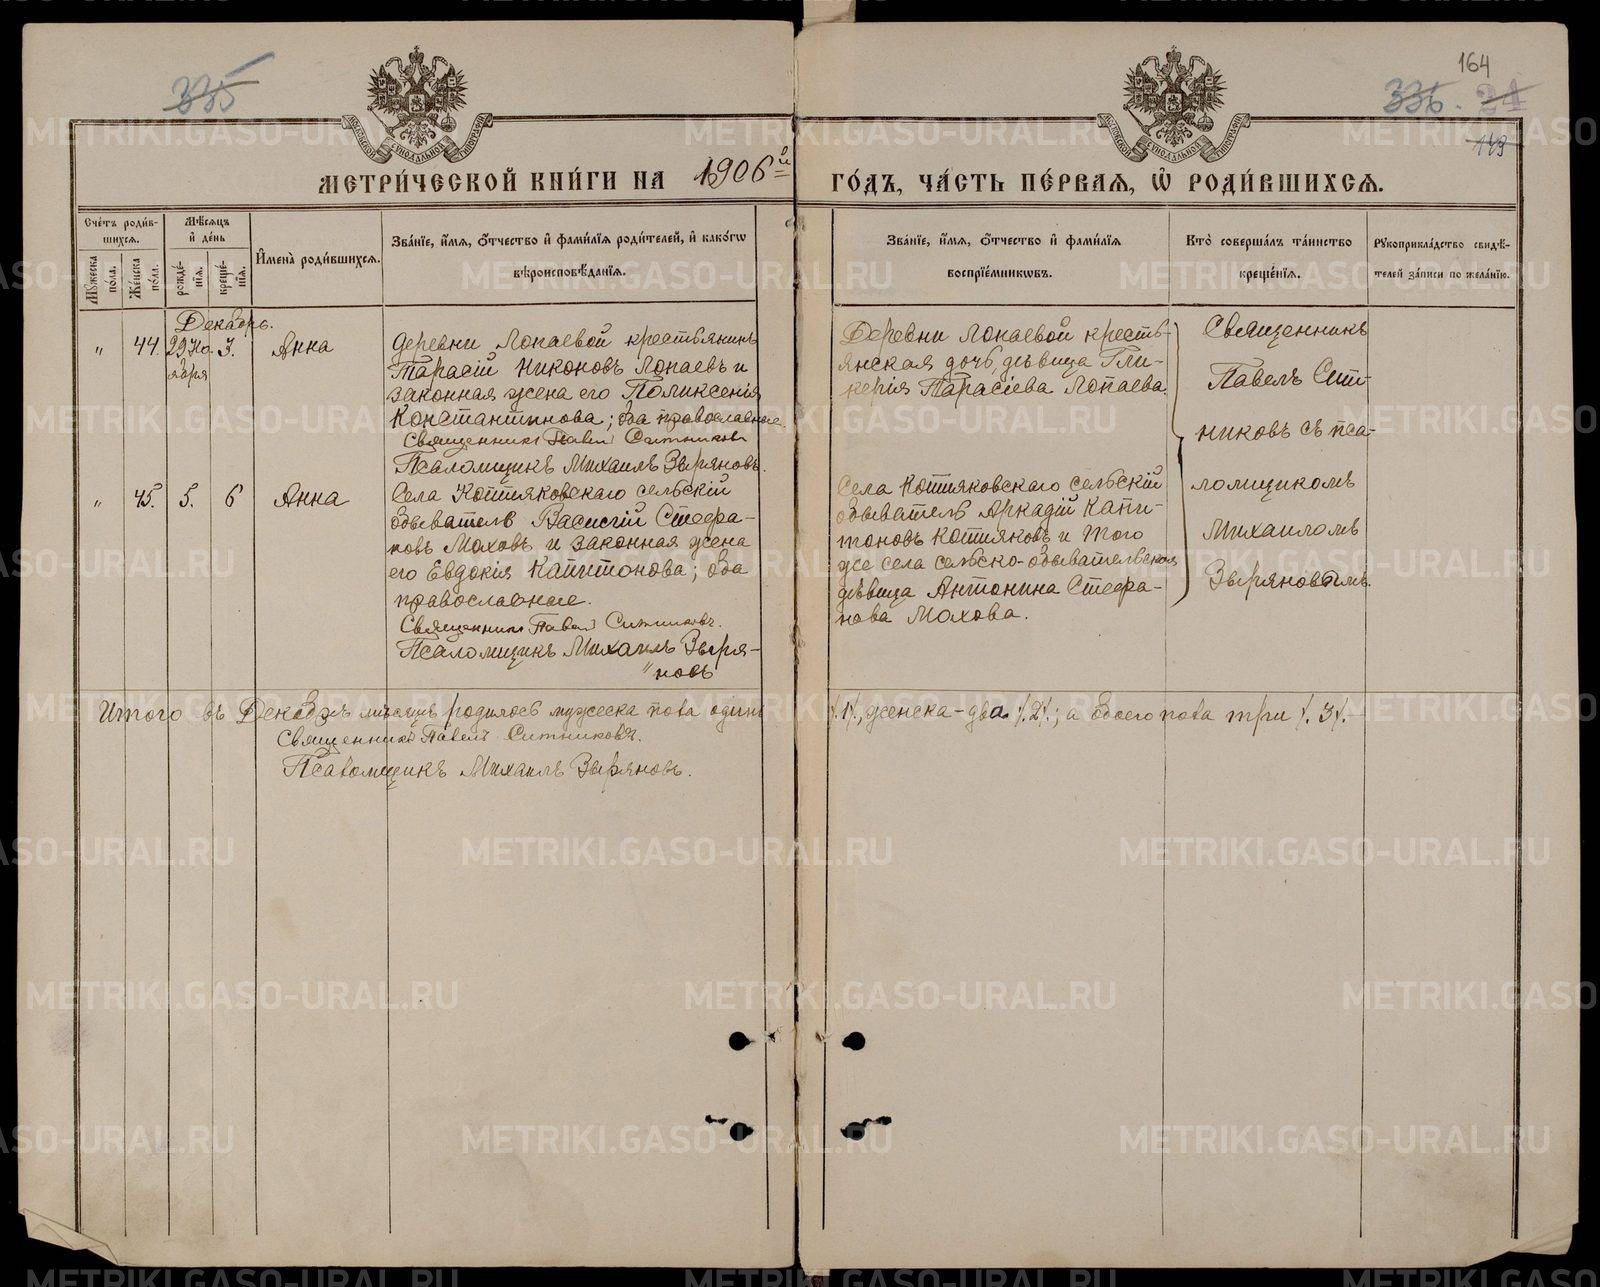 335
164
336. 24
149
МОСКОВСКОЙ СѴНОДАЛЬНОЙ ТИПОГРАФІИ
МОСКОВСКОЙ СѴНОДАЛЬНОЙ ТИПОГРАФІИ
МЕТРИ́ЧЕСКОЙ КНИ́ГИ НА 1906ой ГО́ДЪ, ЧА́СТЬ ПЕ́РВАЯ, Ѡ РОДИ́ВШИХСЯ.
Сче́тъ роди́в-
шихся.
Мꙋ́жеска по́ла.
Же́нска по́ла.
Мѣ́сяцъ
и҆ де́нь
рожде́-
нїя.
креще́-
нїя.
И҆мена̀ роди́вшихся.
Зва́нїе, и҆́мя, ѻ҆́тчество и҆ фами́лїя роди́телей, и҆ како́гѡ
вѣроисповѣ́данїя.
Зва́нїе, и҆́мя, ѻ҆́тчество и҆ фами́лїя
воспрїе́мникѡвъ.
Кто̀ соверша́лъ та́инство
креще́нїя.
Рꙋкоприкла́дство свидѣ́-
телей за́писи по жела́нїю.
Декабрь.
" 44. 29 Но-
ября 3. Анна
Деревни Лопаевой крестьянинъ
Тарасій Никоновъ Лопаевъ и
законная жена его Поликсенія
Константинова; оба православные.
Священникъ Павелъ Ситниковъ
Псаломщикъ Михаилъ Зыряновъ.
Деревни Лопаевой кресть-
янская дочь, дѣвица Гли-
керія Тарасіева Лопаева.
Священникъ
Павелъ Сит-
никовъ съ пса-
ломщикомъ
Михаиломъ
Зыряновымъ.
" 45. 5. 6 Анна
Села Коптяковскаго сельскій
обыватель Василій Стефа-
новъ Моховъ и законная жена
его Евдокія Капитонова; оба
православные.
Священникъ Павелъ Ситниковъ.
Псаломщикъ Михаилъ Зыря-
"новъ
Села Коптяковскаго сельскій
обыватель Аркадій Капи-
тоновъ Коптяковъ и того
же села сельско-обывательская
дѣвица Антонина Стефа-
нова Мохова.
Итого въ Декабрѣ мѣсяцѣ родилось мужеска пола одинъ /.1/., женска - два /.2/.; а обоего пола три /.3/.
Священникъ Павелъ Ситниковъ.
Псаломщикъ Михаилъ Зыряновъ.
METRIKI.GASO-URAL.RU